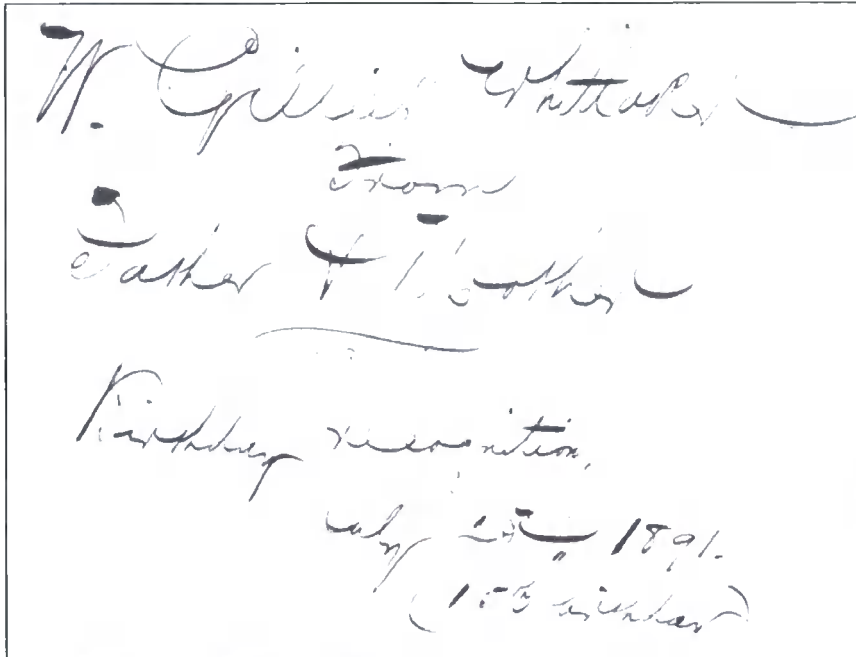 W. Gillies Whittaker
From
Father & Mother
Birthday recognition,
July 1891.
birthday)